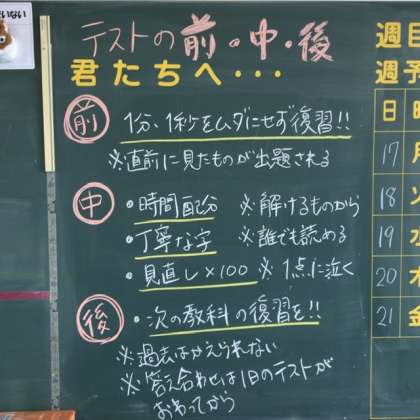 いない
テストの前・中・後
君たちへ・・・
前 1分、1秒をムダにせず復習!!
※直前に見たものが出題される
中 ・時間配分 ※解けるものから
・丁寧な字 ※誰でも読める
・見直し×100 ※1点に泣く
後 ・次の教科の復習を!!
※過去はかえられない
※答え合わせは1日のテストが
おわってから
週目
週予
日曜
17 月
18 火
19 水
20 木
21 金